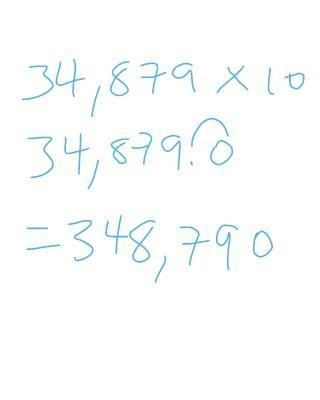 34,879 × 10
34,879.0
=348,790